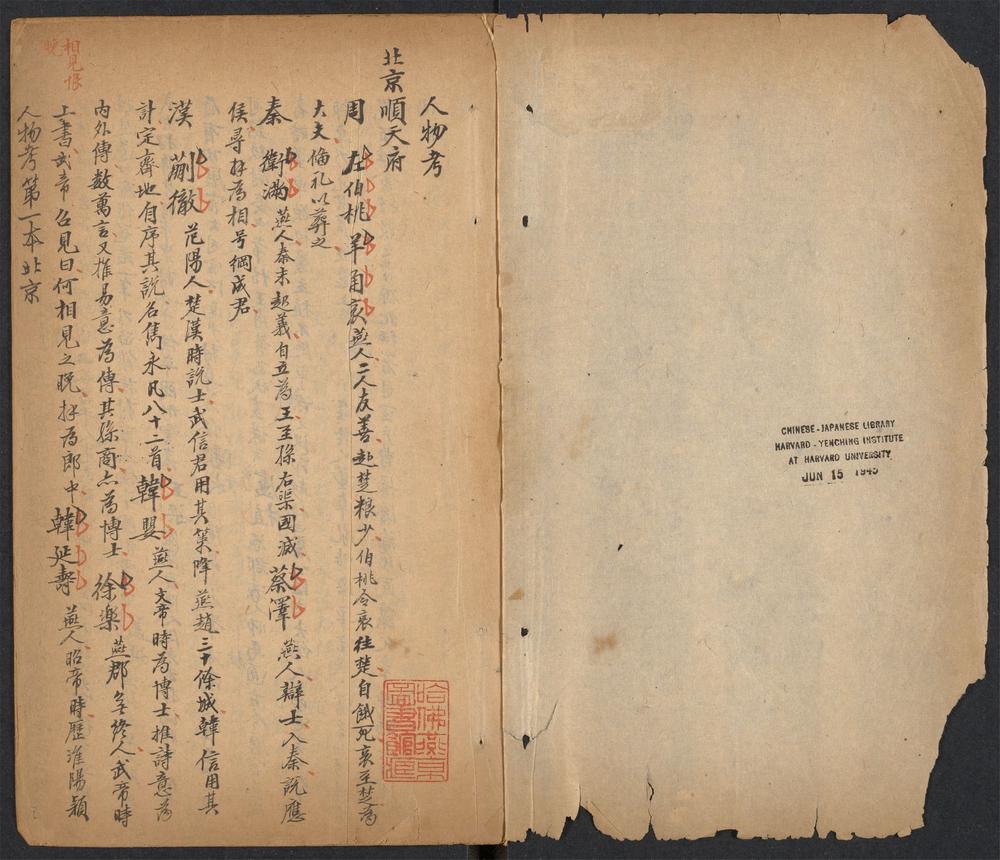 人物考
北京順天府
周 左伯桃 羊角哀 燕人二人友善赴楚粮少伯桃令哀往楚自餓死哀至楚為
大夫偹礼以葬之
秦 衛滿 燕人秦末起義自立為王至孫右渠國滅 蔡澤 燕人辯士入秦說應
侯尋拜為相号綱成君
漢 蒯徹 范陽人楚漢時說士武信君用其策降燕趙三十餘城韓信用其
計定齊地自序其說名雋永凡八十二首 韓嬰 燕人文帝時為博士推詩意為
内外傳数萬言又推易意為傳其孫商亦為博士 徐楽 燕郡無終人武帝時
上書武帝召見曰何相見之晚拜為郎中 韓延壽 燕人昭帝時歷淮陽潁
人物考第一本北京
相見恨
晚
哈佛燕京
圖書館藏
CHINESE-JAPANESE LIBRARY
HARVARD-YENCHING INSTITUTE
AT HARVARD UNIVERSITY
JUN 15 1945